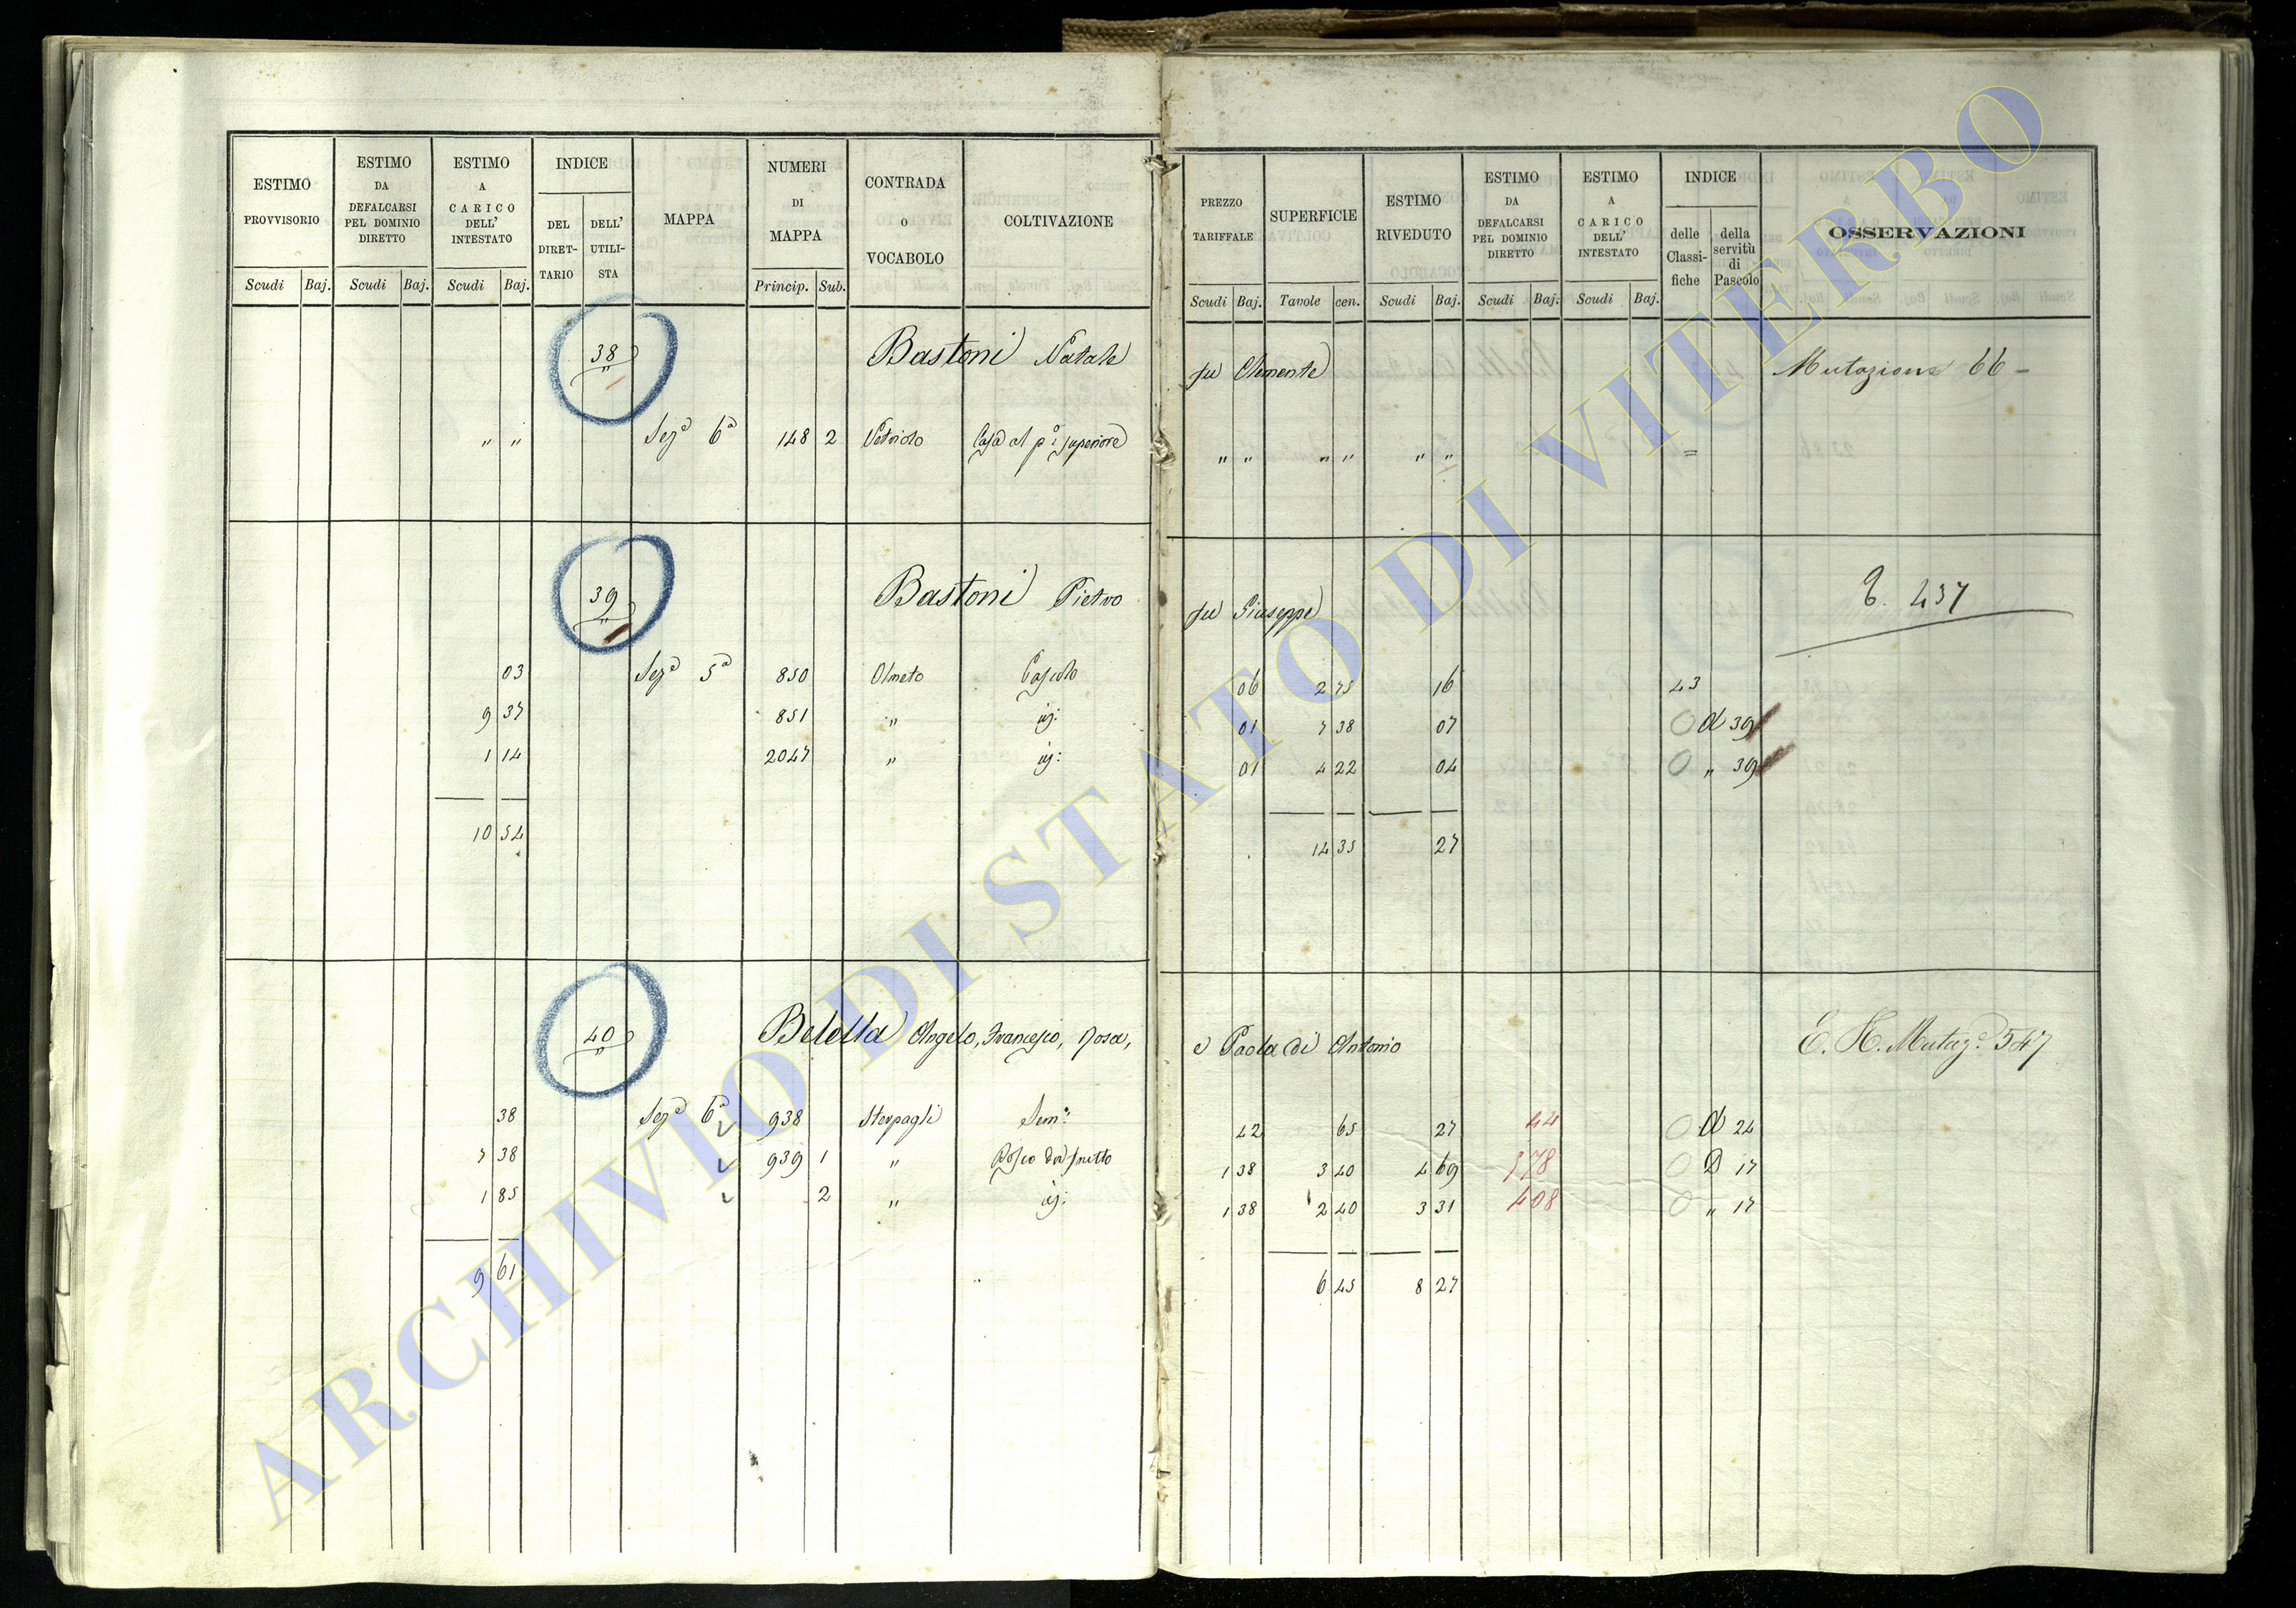 ESTIMO PROVVISORIO
ESTIMO DA DEFALCARSI PEL DOMINIO DIRETTO
ESTIMO A CARICO DELL' INTESTATO
INDICE
DEL DIRET-TARIO
DELL' UTILI-STA
MAPPA
NUMERI DI MAPPA
CONTRADA O VOCABOLO
COLTIVAZIONE
PREZZO TARIFFALE
SUPERFICIE
ESTIMO RIVEDUTO
ESTIMO DA DEFALCARSI PEL DOMINIO DIRETTO
ESTIMO A CARICO DELL' INTESTATO
INDICE
delle Classi-fiche
della servitù di Pascolo
OSSERVAZIONI
Scudi Baj. Scudi Baj. Scudi Baj. Princip. Sub. Scudi Baj. Tavole cen. Scudi Baj. Scudi Baj. Scudi Baj.
38 Bastoni Natale fu Clemente Mutazione 66 -
" " Sezª 6ª 148 2 Vetriolo Casa al pº superiore " " " " " " =
39 Bastoni Pietro fu Giuseppe 437
03 Sezª 5ª 850 Olmeto Pascolo 06 2 75 16 43
9 37 851 " id: 01 7 38 07 0 d 39
1 14 2047 " id: 01 4 22 04 0 " 39
10 54 14 35 27
40 Belella Angelo, Francesco, Rosa, e Paola di Antonio E. H. Mutazª 547
38 Sezª 6ª 938 Sterpagli Semº 42 65 27 44 0 d 24
7 38 939 1 " Bosco da frutto 1 38 3 40 4 69 0 D 17
1 85 2 " id: 1 38 2 40 3 31 408 0 " 17
9 61 6 45 8 27
ARCHIVIO DI STATO DI VITERBO